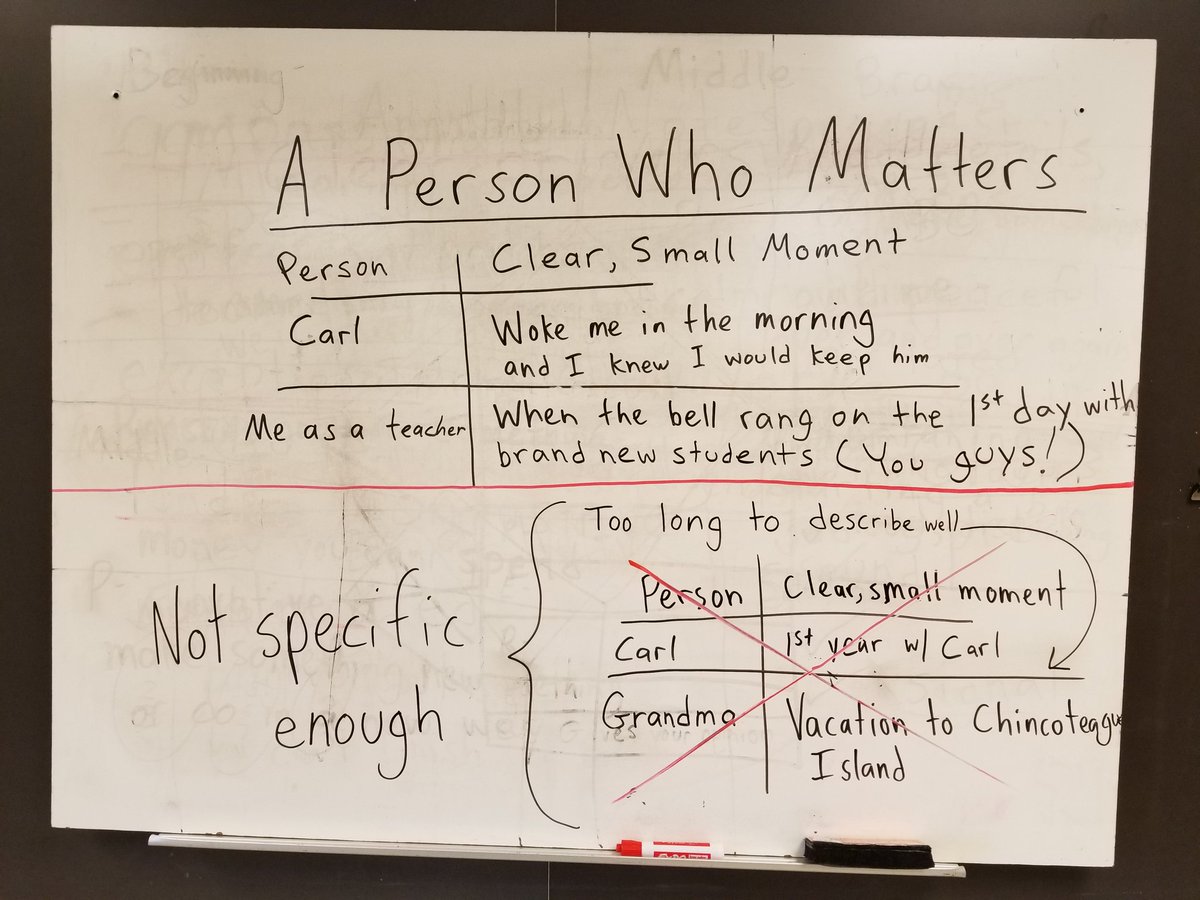 A Person Who Matters
Person
Clear, Small Moment
Carl
Woke me in the morning
and I knew I would keep him
Me as a teacher
When the bell rang on the 1st day with
brand new students (You guys!)
Not specific
enough
Too long to describe well
Person
Clear, small moment
Carl
1st year w/ Carl
Grandma
Vacation to Chincoteague
Island